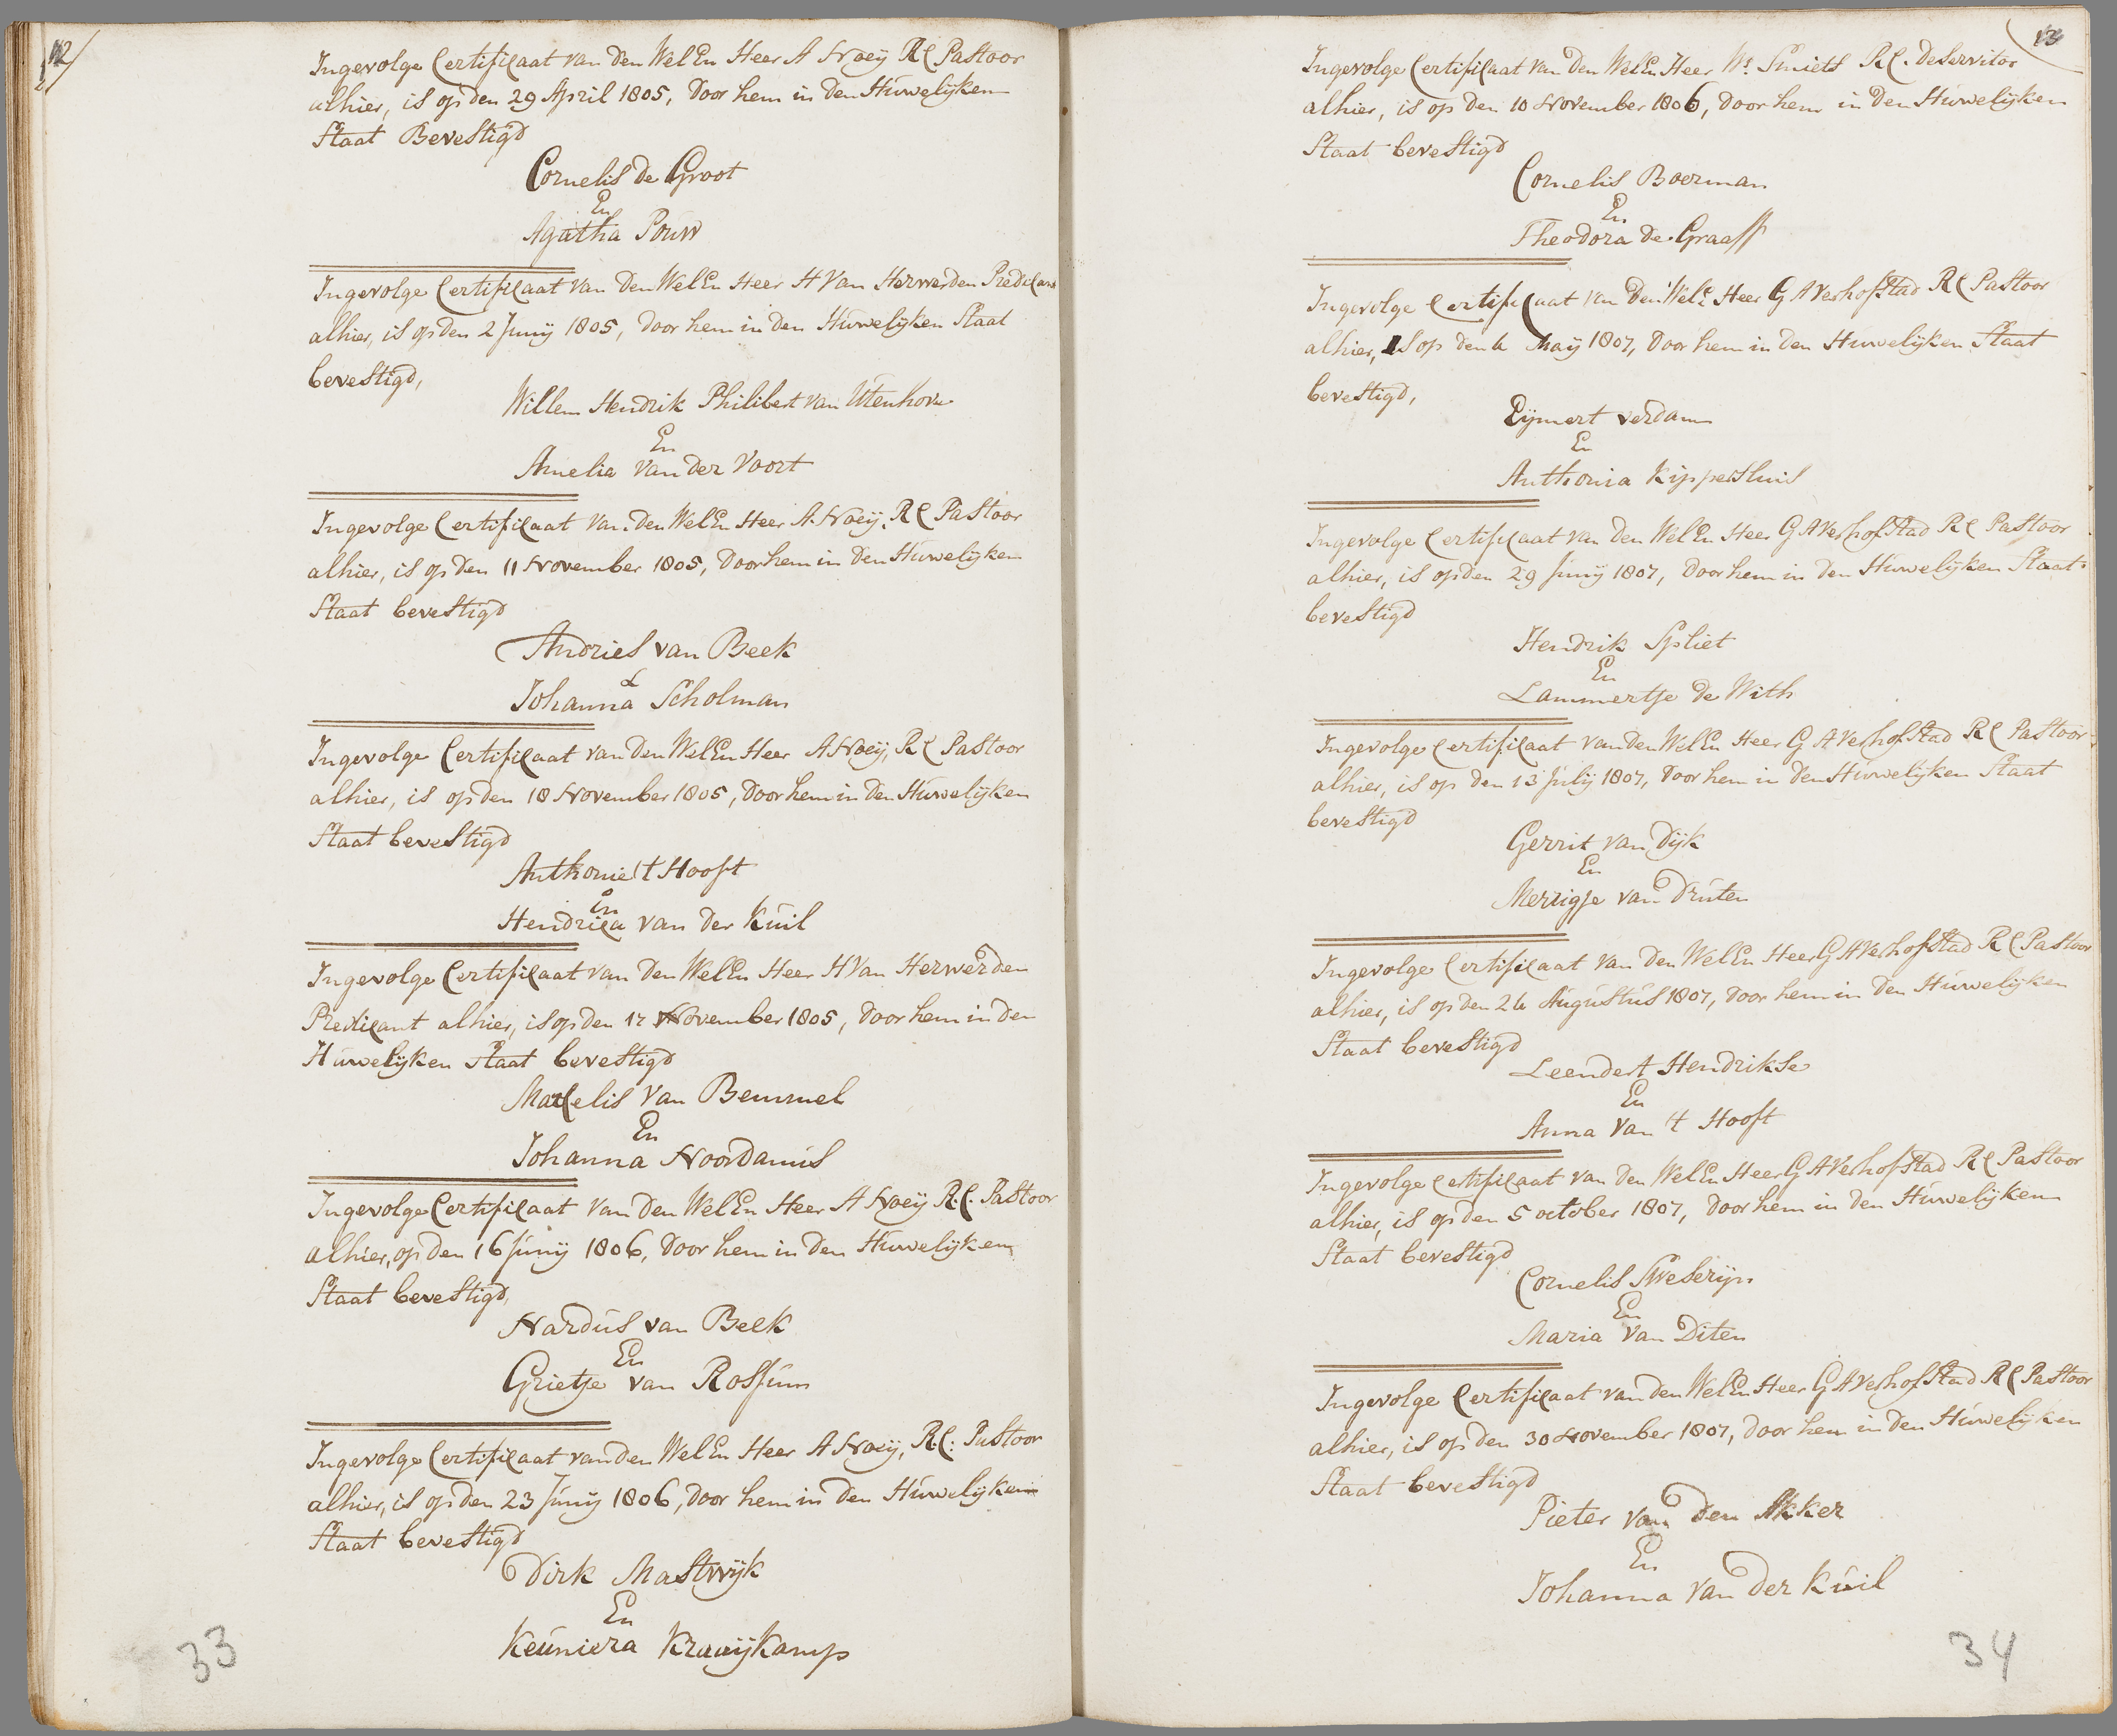 12
Ingevolge Certificaat van den WelEn Heer A Nroeij RC Pastoor
alhier, is op den 29 April 1805, door hem in den Huwelijken
Staat Bevestigd
Cornelis de Groot
En
Agatha Pouw
Ingevolge Certificaat van den WelEn Heer H Van Herwerden Predicant
alhier, is op den 2 Junij 1805, door hem in den Huwelijken Staat
bevestigd,
Willem Hendrik Philibert van Utenhove
En
Amelia van der Voort
Ingevolge Certificaat van den WelEn Heer A. Nroeij, RC Pastoor
alhier, is op den 11 November 1805, door hem in den Huwelijken
Staat bevestigd
Andries van Beek
&
Johanna Scholman
Ingevolge Certificaat van den WelEn Heer A Nroeij, RC Pastoor
alhier, is op den 18 November 1805, door hem in den Huwelijken
Staat bevestigd
Anthonie 't Hooft
En
Hendrica van der Kuil
Ingevolge Certificaat van den WelEn Heer H Van Herwerden
Predicant alhier, is op den 17 November 1805, door hem in den
Huwelijken Staat bevestigd
Marcelis van Bemmel
En
Johanna Noordanus
Ingevolge Certificaat van den WelEn Heer A Nroeij R.C. Pastoor
alhier, op den 16 Junij 1806, door hem in den Huwelijken
Staat bevestigd,
Nardus van Beek
En
Grietje van Rossum
Ingevolge Certificaat van den WelEn Heer A Nroeij, R.C. Pastoor
alhier, is op den 23 Junij 1806, door hem in den Huwelijken
Staat bevestigd
Dirk Mastwijk
En
Keuniera Kraaijkamp
33
13
Ingevolge Certificaat van den WelEn Heer Ws. Smiets RC. Deservitor
alhier, is op den 10 November 1806, door hem in den Huwelijken
Staat bevestigd
Cornelis Boerman
En
Theodora de Graaff
Ingevolge Certificaat van den WelE Heer G A Verhofstad RC Pastoor
alhier, is op den 4 Maij 1807, door hem in den Huwelijken Staat
bevestigd,
Eijmert verdam
En
Anthonia Kippersluis
Ingevolge Certificaat van den WelEn Heer G A Verhofstad RC Pastoor
alhier, is op den 29 Junij 1807, door hem in den Huwelijken Staat
bevestigd
Hendrik Spliet
En
Lammertje de With
Ingevolge Certificaat van den WelEn Heer G A Verhofstad RC Pastoor
alhier, is op den 13 Julij 1807, door hem in den Huwelijken Staat
bevestigd
Gerrit van Dijk
En
Merrigje van Druten
Ingevolge Certificaat van den WelEn Heer G A Verhofstad RC Pastoor
alhier, is op den 24 Augustus 1807, door hem in den Huwelijken
Staat bevestigd
Leendert Hendrikse
En
Anna van 't Hooft
Ingevolge Certificaat van den WelEn Heer G A Verhofstad RC Pastoor
alhier, is op den 5 october 1807, door hem in den Huwelijken
Staat bevestigd
Cornelis Sweserijn
En
Maria van Diten
Ingevolge Certificaat van den WelEn Heer G A Verhofstad RC Pastoor
alhier, is op den 30 November 1807, door hem in den Huwelijken
Staat bevestigd
Pieter van den Akker
En
Johanna van der Kuil
34